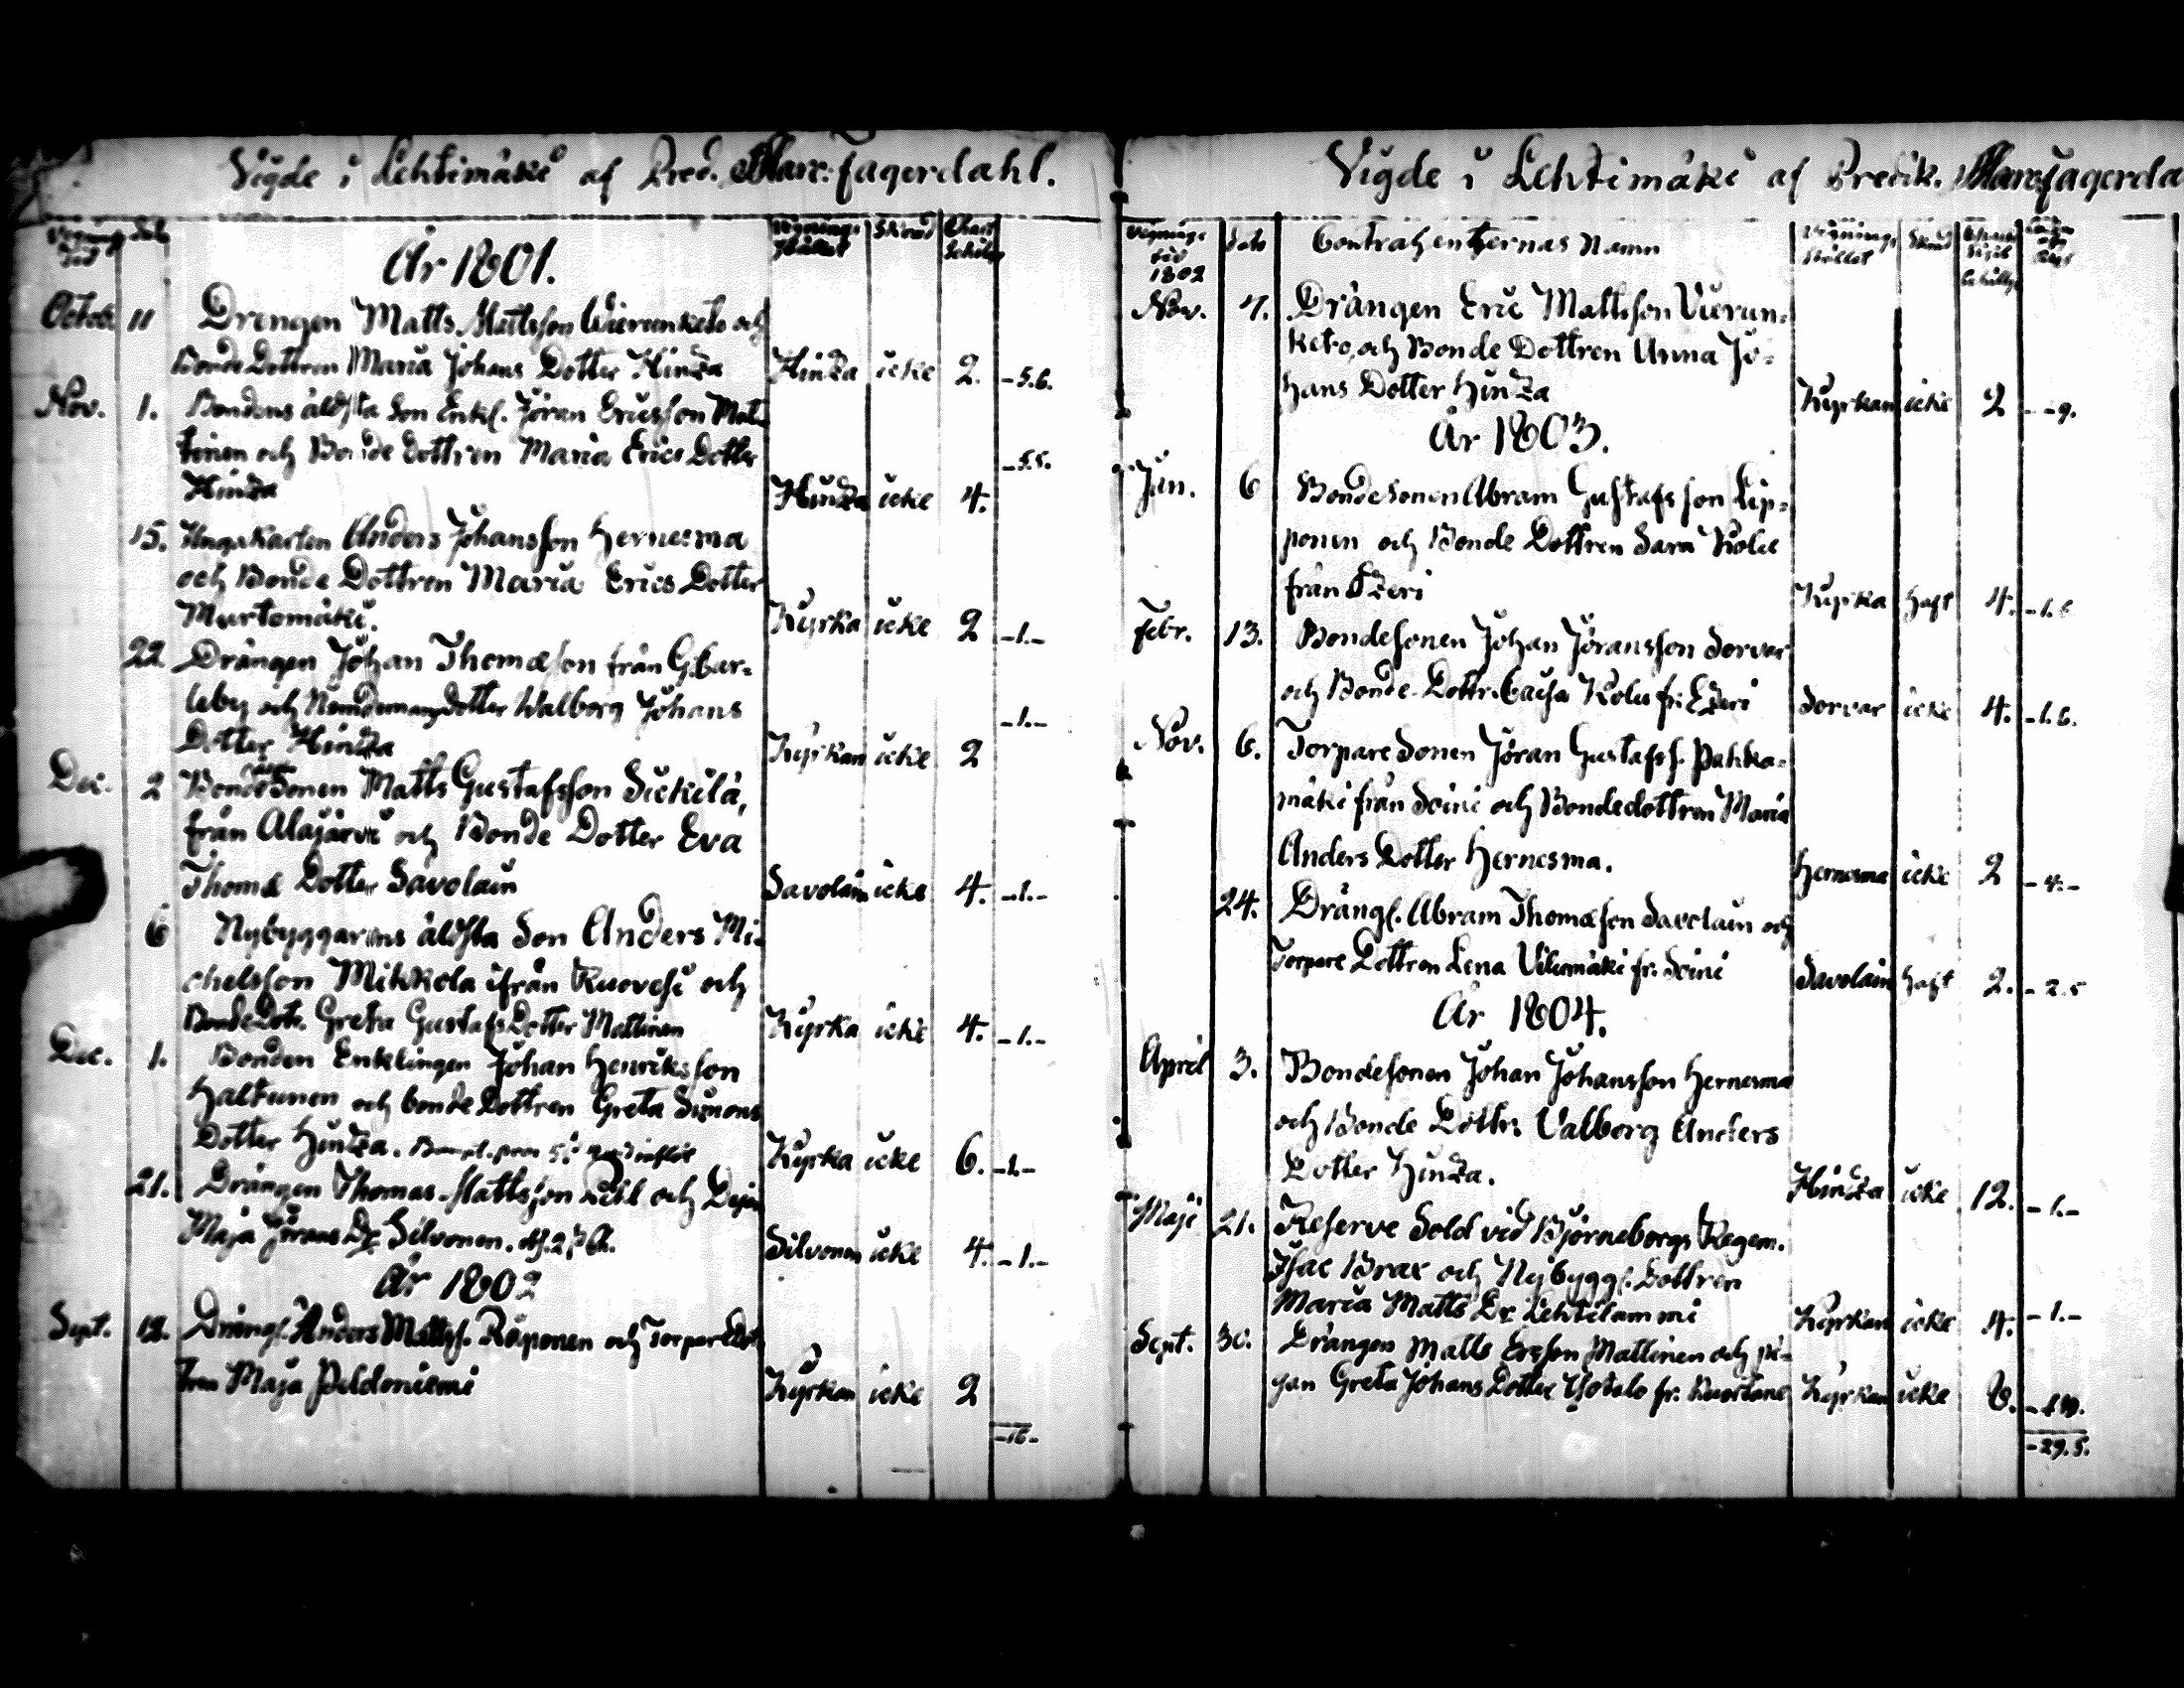 Vigde i Lehtimäki af Pred. Marc: Fagerdahl.
År 1801.
Octob. 11 Drengen Matts Mattsson Wierunketo och
Bonde Dottren Maria Johans Dotter Hinza Hinza icke 2. -5.6.
Nov. 1. Bondens äldsta Son Enkl. Jöran Ericsson Mat-
tinen och Bonde Dottren Maria Erics Dotter -5.5.
Hinza Hinza icke 4.
15. Ungakarlen Anders Johansson Hernesma
och Bonde Dottren Maria Erics Dotter
Murtomäki. Kyrka icke 2 -1.-
22 Drängen Johan Thomæson från G:Car-
leby och Nemdemans dotter Walborg Johans -1.-
Dotter Hinza Kyrkan icke 2
Dec. 2 Bonde Sonen Matts Gustafsson Sickilä,
från Alajärvi och Bonde Dotter Eva
Thomæ Dotter Savolain Savolain icke 4. -1.-
6 Nybyggarens äldsta Son Anders Mi-
chelsson Mikkola ifrån Ruovesi och
Bonde Dotr. Greta Gustafs Dotter Mattinen Kyrka icke 4. -1.-
Dec. 1. Bonden Enklingen Johan Henriksson
Haltunen och bonde Dottren Greta Simons
Dotter Hinza. Kyrka icke 6. -1.-
21. Drängen Thomas Mattsson och
Maja Jörans Dr Silvonen. Silvonen icke 4. -1.-
År 1802
Sept. Drängs. Anders Mattss. Räponen och Torpare Dot-
tren Maja Peldoniemi Kyrkan icke 2
-16-
Vigde i Lehtimäki af Predik. Marc: Fagerda
Vignings tid 1802 dato Contrahenternas Namn Vignings stället Skrud
Nov. 7. Drängen Eric Mattsson Vierun-
keto, och Bonde Dottren Anna Jo-
hans Dotter Hinza Kyrkan icke 2 --9.
År 1803.
Jan. 6 Bondesonen Abram Gustafsson Lip-
ponen och Bonde Dottren Sara Kolu
från Ezeri Kyrka haft 4. -1.6
Febr. 13. Bondesonen Johan Jöransson Sorvar
och Bonde Dottr. Caisa Kolu fr: Ezeri Sorvar icke 4. -1.6.
Nov. 6. Torpare Sonen Jöran Gustafss. Pahka-
mäki från Soini och Bondedottren Maria
Anders Dotter Hernesma. Hernesma icke 2 -4.-
24. Drängs. Abram Thomæson Savolain och
Torpare Dottren Lena Vilumäki fr: Soini Savolain haft 2. -2.5
År 1804.
April 3. Bondesonen Johan Johansson Hernesma
och Bonde Dottr. Valborg Anders
Dotter Hinza. Hinza icke 12. -1.-
Maji 21. Reserve Sold vid Björneborgs Regem.
Isac Brax och Nybyggs. Dottren
Maria Matts Dr Lehtilammi Kyrkan icke 4. -1.-
Sept. 30. Drängen Matts Ersson Mattinen och pi-
gan Greta Johans Dotter fr. Kuortane Kyrkan icke 8.
-29.5.